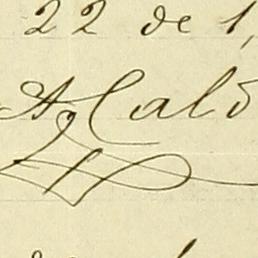 22 de 1
A. Cald